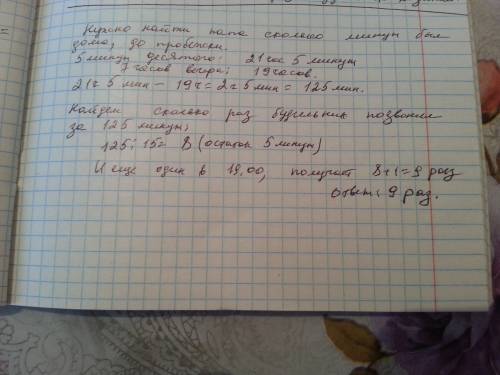 Нужно найти папа сколько минут был
дома, до пробежки.
5 минут десятого: 21 час 5 минут
7 часов вечера; 19 часов.
21ч 5 мин - 19ч = 2ч 5 мин = 125 мин.
Найдем сколько раз будильник позвонил
за 125 минут;
125:15= 8 (остаток 5 минут)
И еще один в 19.00, получает 8+1=9 раз
ответ: 9 раз.